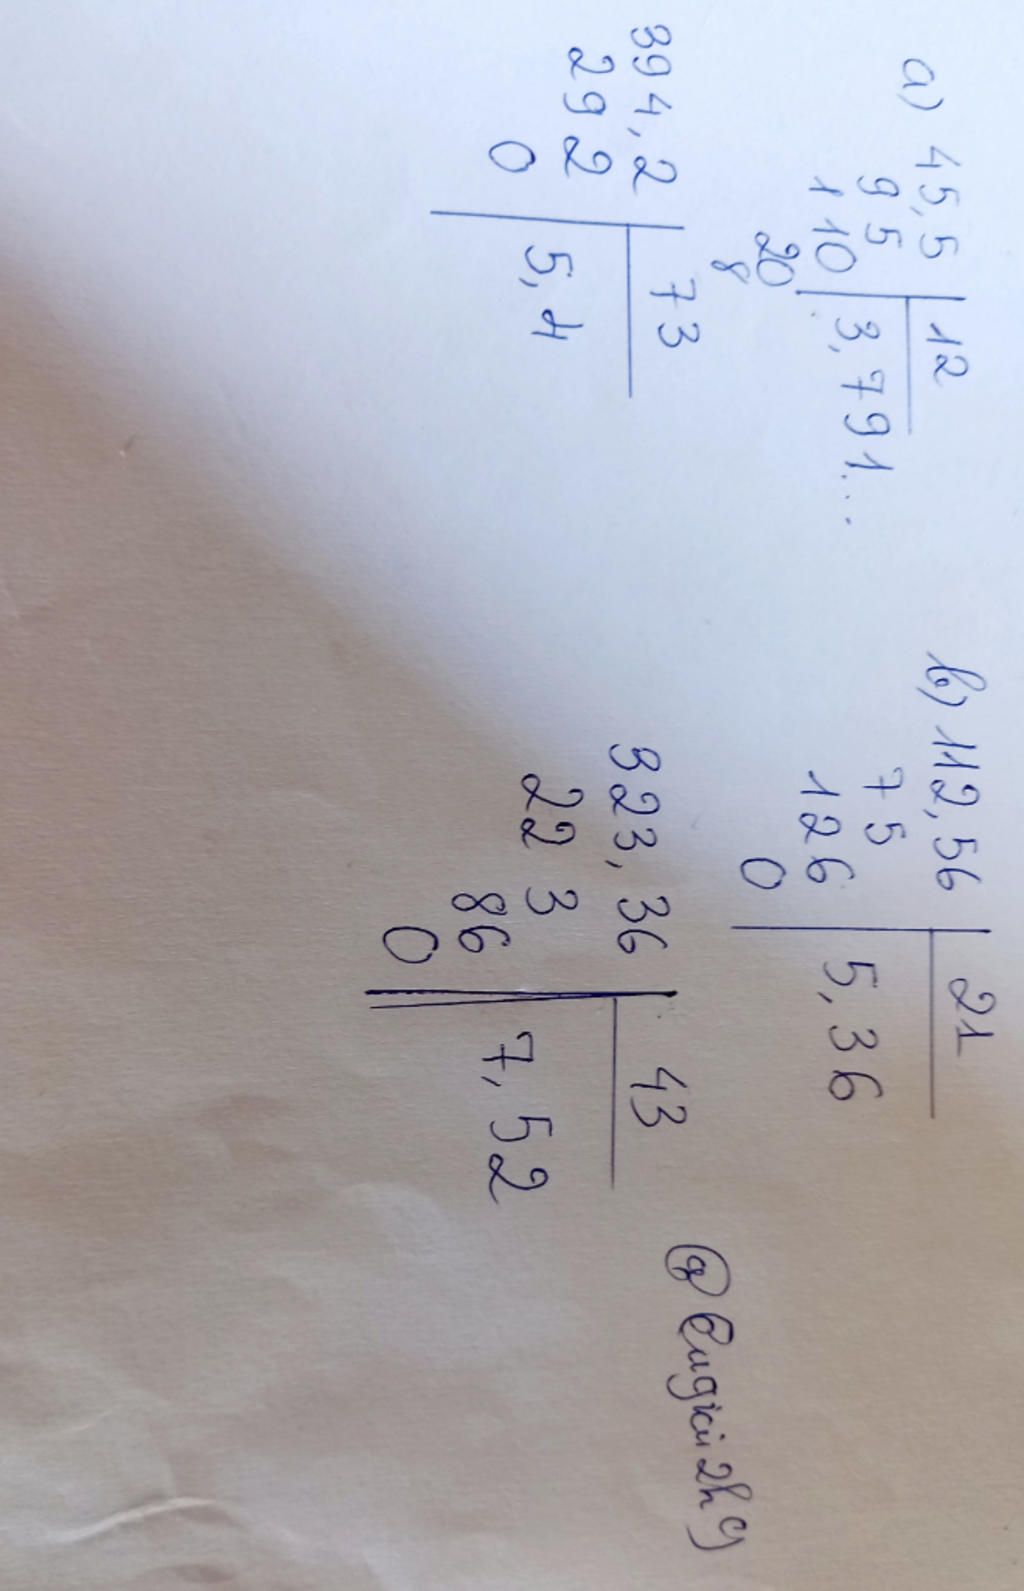 a) 45,5 | 12
9 5 | 3,791...
1 10
20
8
394,2 | 73
29 2 | 5,4
0
b) 112,56 | 21
7 5 | 5,36
1 26
0
323,36 | 43
22 3 | 7,52
86
0